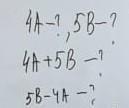 4A-?, 5B-?
4A+5B -?
5B-4A -?